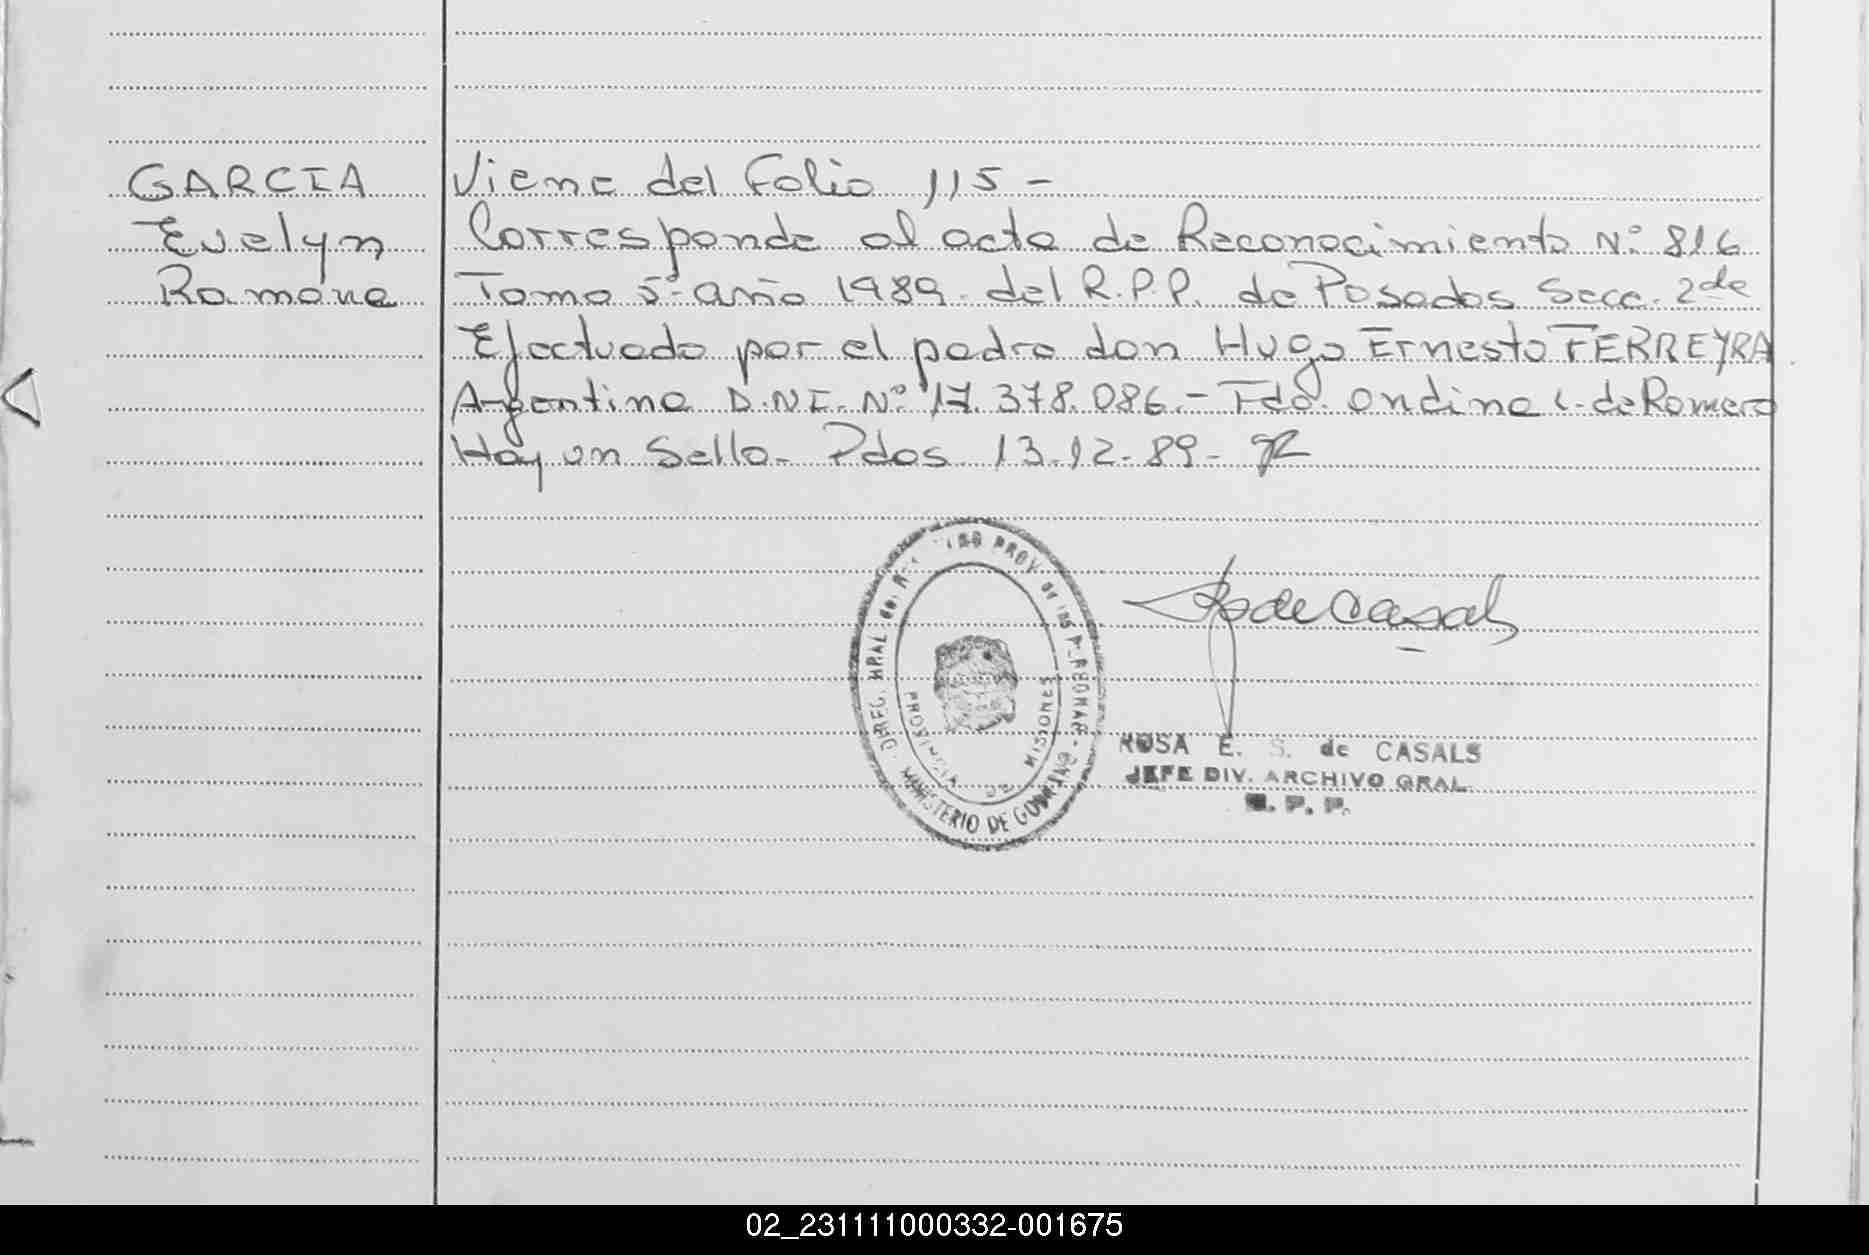 GARCIA
Evelyn
Ramona
Viene del Folio 115 -
Corresponde al acta de Reconocimiento N.º 816
Tomo 5º año 1989. del R.P.P. de Posadas Secc. 2da
Efectuado por el padre don Hugo Ernesto FERREYRA
Argentino D.N.I. Nº 17.378.086.- Fdo. Ondina L. de Romero
Hay un Sello. Pdas. 13.12.89-
DIREC. GRAL. del PROV. de las PERSONAS - MINISTERIO DE GOBIERNO
PROVINCIA DE MISIONES
de Casals
ROSA E. S. de CASALS
JEFE DIV. ARCHIVO GRAL.
R. P. P.
02_231111000332-001675